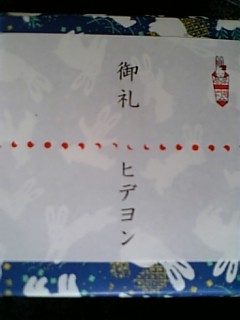 御礼
ヒデヨン